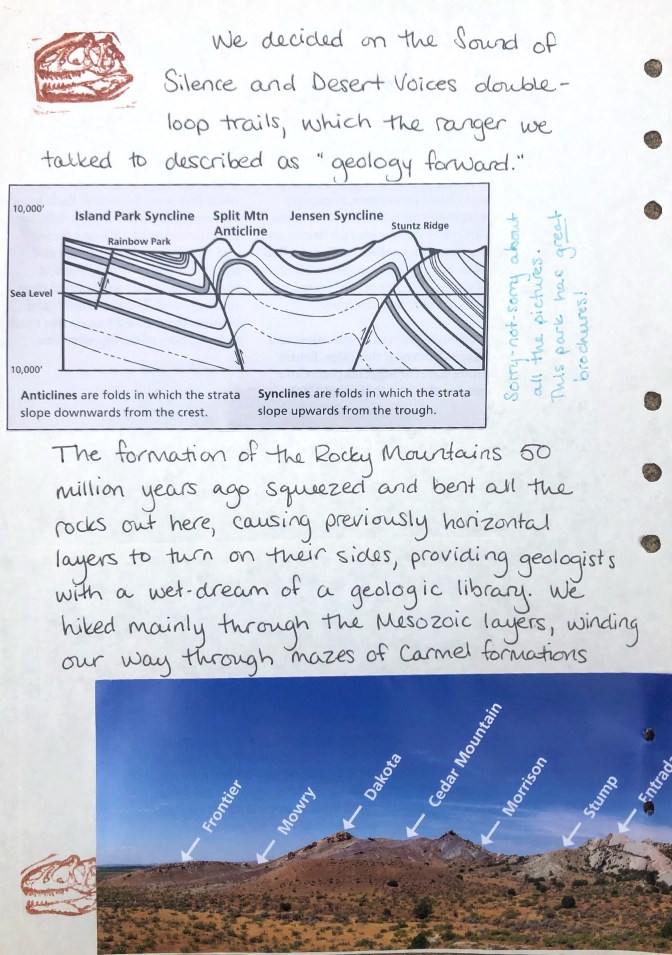 We decided on the Sound of
Silence and Desert Voices double-
loop trails, which the ranger we
talked to described as "geology forward."
10,000'
Island Park Syncline
Split Mtn
Anticline
Jensen Syncline
Stuntz Ridge
Rainbow Park
Sea Level
10,000'
Anticlines are folds in which the strata
slope downwards from the crest.
Synclines are folds in which the strata
slope upwards from the trough.
Sorry-not-sorry about
all the pictures.
This park has great
brochures!
The formation of the Rocky Mountains 50
million years ago squeezed and bent all the
rocks out here, causing previously horizontal
layers to turn on their sides, providing geologists
with a wet-dream of a geologic library. We
hiked mainly through the Mesozoic layers, winding
our way through mazes of Carmel formations
Frontier
Mowry
Dakota
Cedar Mountain
Morrison
Stump
Entrad